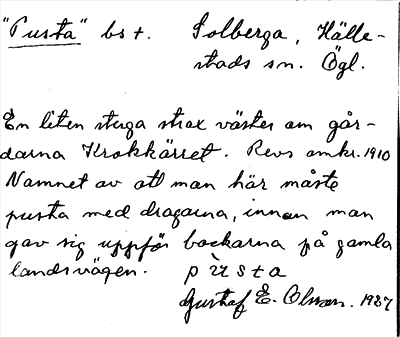 "Pusta" bst. Solberga, Hälle-
stads sn. Ögl.
En liten stuga strax väster om går-
darna Krokkärret. Revs omkr. 1910
Namnet av att man här måste
pusta med dragarna, innan man
gav sig uppför backarna på gamla
landsvägen. pùsta
Gustaf E. Olsson. 1927